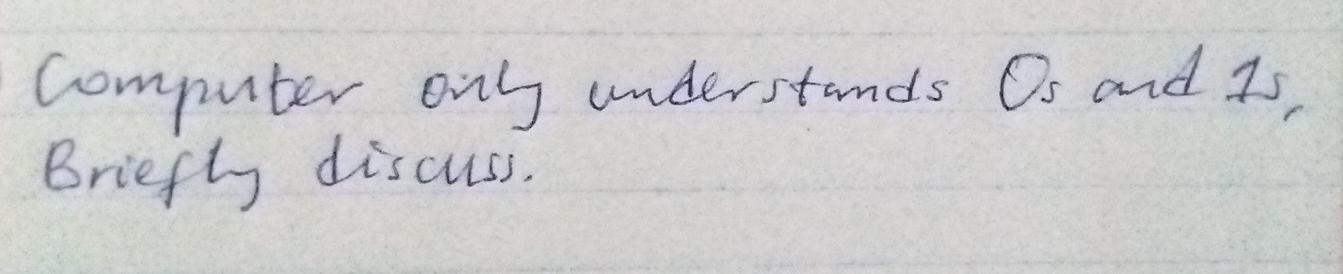 Computer only understands 0s and 1s,
Briefly discuss.